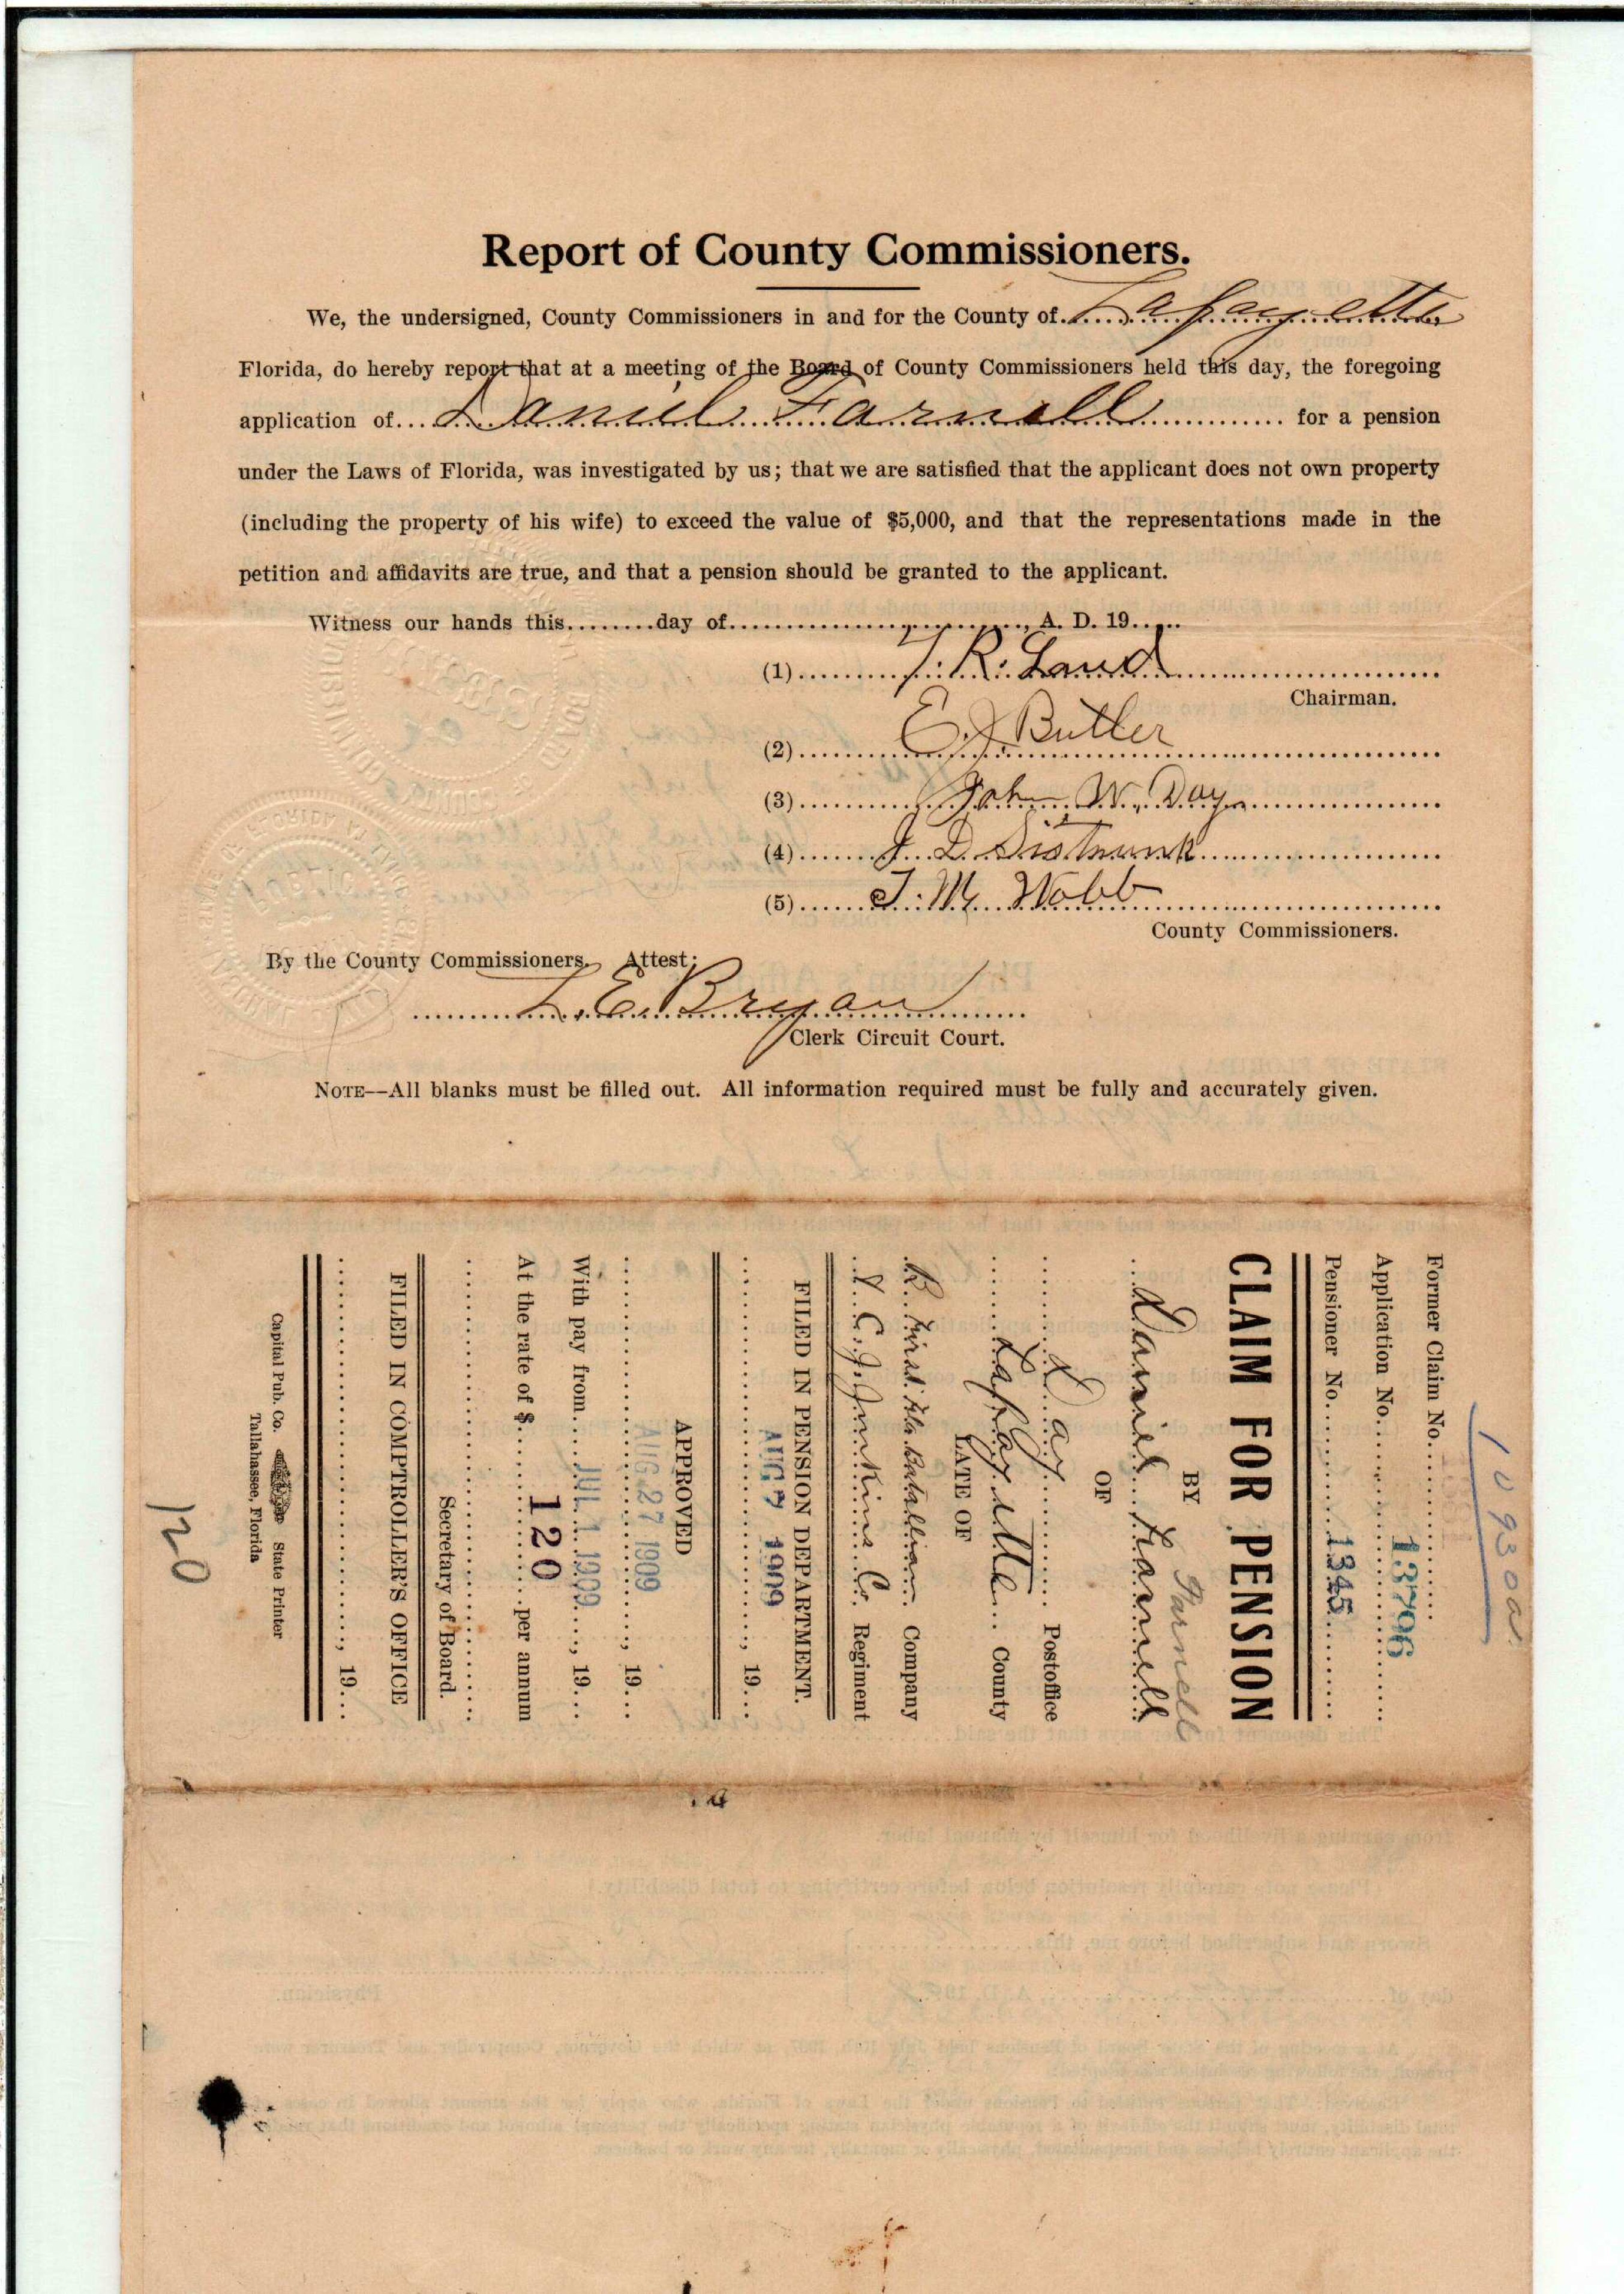 Report of County Commissioners.
We, the undersigned, County Commissioners in and for the County of Lafayette
Florida, do hereby report that at a meeting of the Board of County Commissioners held this day, the foregoing
application of Daniel Farnell for a pension
under the Laws of Florida, was investigated by us; that we are satisfied that the applicant does not own property
(including the property of his wife) to exceed the value of $5,000, and that the representations made in the
petition and affidavits are true, and that a pension should be granted to the applicant.
Witness our hands this........day of............................, A. D. 19.....
(1) T. R. Land
Chairman.
(2) E. J. Butler
(3) John W. Day
(4) J. D. Sistrunk
(5) T. M. Webb
County Commissioners.
By the County Commissioners. Attest:
L. E. Bryan
Clerk Circuit Court.
NOTE—All blanks must be filled out. All information required must be fully and accurately given.
Former Claim No.
Application No. 13706
Pensioner No. 1345
CLAIM FOR PENSION
BY
Farnell
Daniel Farnell
OF
Day Postoffice
Lafayette County
LATE OF
B. First Fla. Batallion Company
Co. Regiment
FILED IN PENSION DEPARTMENT.
AUG 7 1909, 19...
APPROVED
AUG 27 1909, 19...
With pay from JUL 1 1909, 19...
At the rate of $ 120 per annum
Secretary of Board.
FILED IN COMPTROLLER'S OFFICE
, 19...
Capital Pub. Co. State Printer
Tallahassee, Florida
120